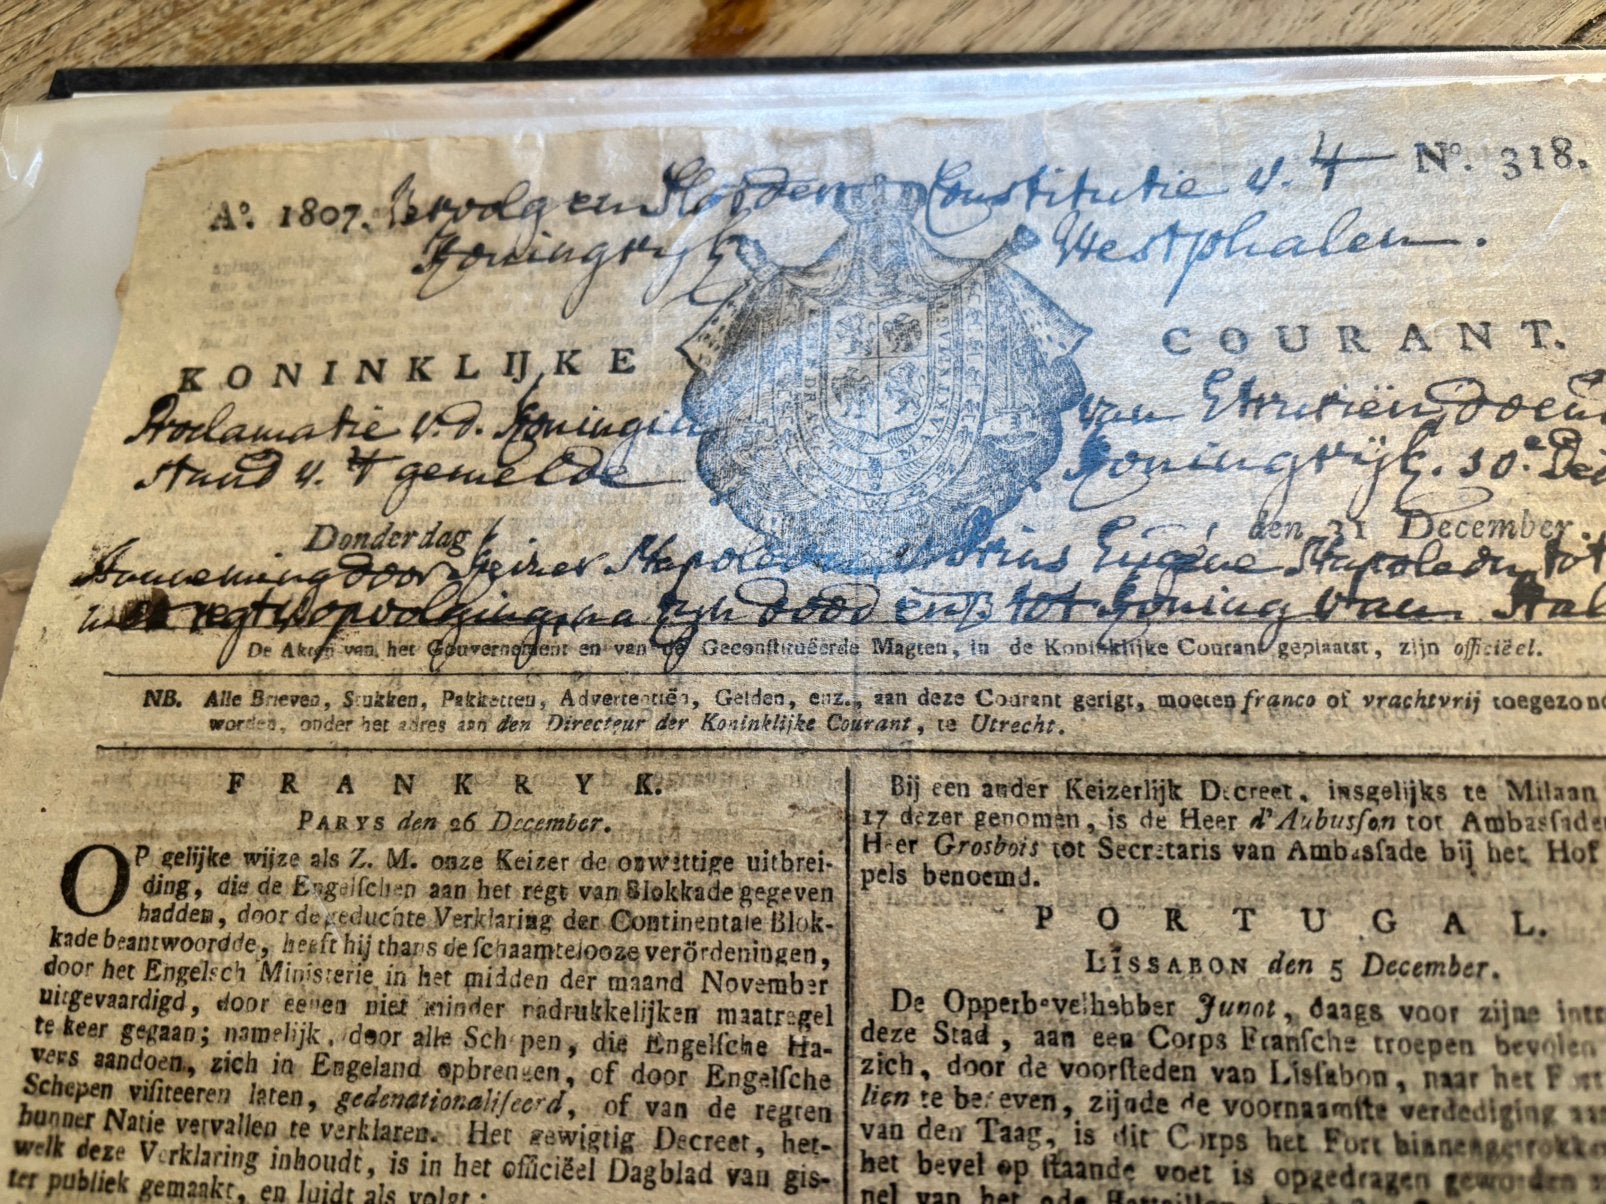 Aº. 1807. Vervolg en Slot der Constitutie v. 't Nº. 318.
Koningryk Westphalen.
KONINKLIJKE COURANT.
Proclamatie v. d. Koningin van Etruriën, doende
stand v. 't gemelde Koningrijk. 10e Dec
Donderdag den 31 December.
Aanneming door Keizer Napoleon v. Prins Eugène Napoleon tot
regt v. opvolging, na zyn dood enz. tot Koning van
De Akten van het Gouvernement en van de Geconstitueerde Magten, in de Koninklijke Courant geplaatst, zijn officiëel.
NB. Alle Brieven, Stukken, Pakketten, Advertentiën, Gelden, enz., aan deze Courant gerigt, moeten franco of vrachtvrij toegezond
worden, onder het adres aan den Directeur der Koninklijke Courant, te Utrecht.
FRANKRYK.
PARYS den 26 December.
OP gelijke wijze als Z. M. onze Keizer de onwettige uitbrei-
ding, die de Engelschen aan het regt van Blokkade gegeven
hadden, door de geduchte Verklaring der Continentale Blok-
kade beantwoordde, heeft hij thans de schaamtelooze verördeningen,
door het Engelsch Ministerie in het midden der maand November
uitgevaardigd, door eenen niet minder nadrukkelijken maatregel
te keer gegaan; namelijk, door alle Schepen, die Engelsche Ha-
vens aandoen, zich in Engeland opbrengen, of door Engelsche
Schepen visiteeren laten, gedenationaliseerd, of van de regten
hunner Natie vervallen te verklaren. Het gewigtig Decreet, het-
welk deze Verklaring inhoudt, is in het officiëel Dagblad van gis-
ter publiek gemaakt, en luidt als volgt:
Bij een ander Keizerlijk Decreet, insgelijks te Milaan
17 dezer genomen, is de Heer d'Aubusson tot Ambassade
Heer Grosbois tot Secretaris van Ambassade bij het Hof
pels benoemd.
PORTUGAL.
LISSABON den 5 December.
De Opperbevelhebber Junot, daags voor zijne intr
deze Stad, aan een Corps Fransche troepen bevolen
zich, door de voorsteden van Lissabon, naar het Fort
lien te begeven, zijnde de voornaamste verdediging aan
van den Taag, is dit Corps het Fort binnengetrokken
het bevel op staande voet is opgedragen geworden
nel van het